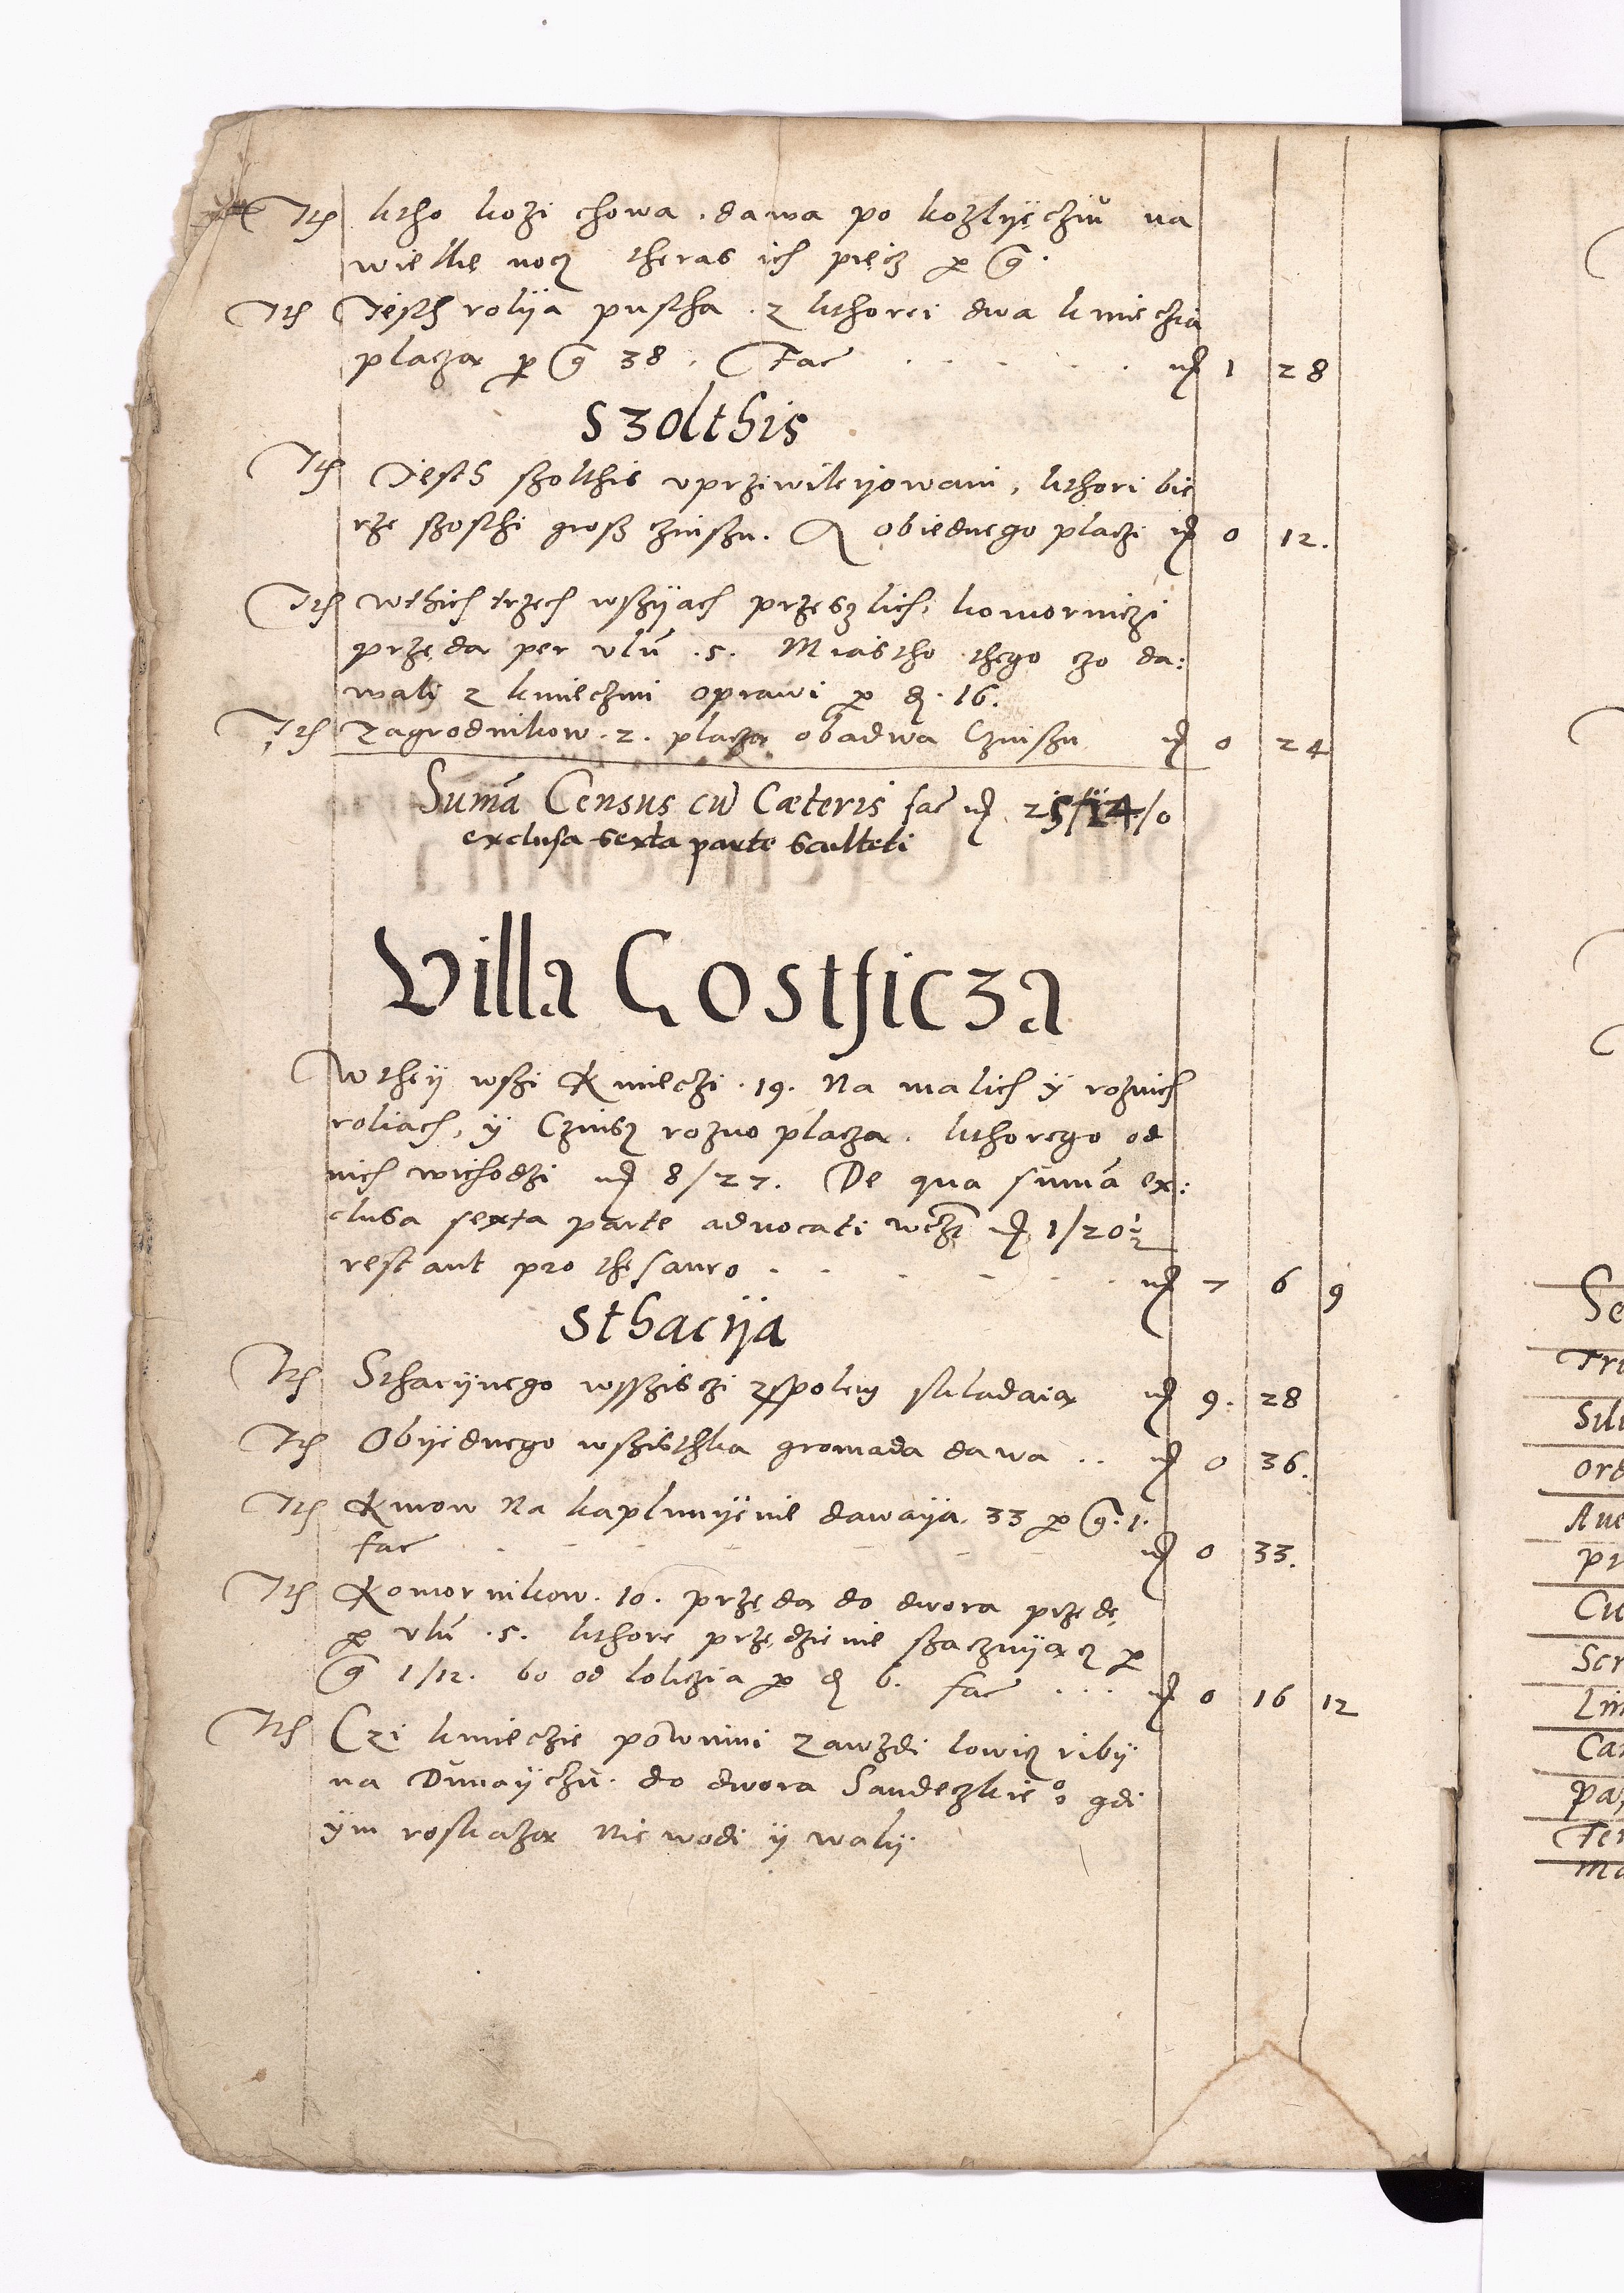 Ite ktho kozi chowa. dawa po kozlyęcziu na
wielkę nocz theras ich pięcz per g.
Ite Jesth rolya pustha. z kthorei dwa kmieczia
placza per g 38. Fac . . . . . mr 1 28
Szolthis
Ite Jesth szolthis uprziwileyowani, kthori bie
rze szosthi grosz czinszu. A obiednego placzi mr 0 12.
Ite wthich trzech wszyach przeszlich, komorniczi
przędą per ulu .5. Miastho thego czo da:
wali z kmieczmi oprawi per d. 16.
Ite Zagrodnikow .2. placzą obadwa Czinszu mr 0 24
Suma Census cu Cæteris fac mr 25/14/0
exclusa sexta parte sculteti
Villa Gosthicza
W they wszi Kmieczi .19. Na malich y roznich
roliach, y Czinsz rozno placzą. kthorego od
nich wichodzi mr 8/27. De qua suma ex:
clusa sexta parte advocati mr 1/20½
restant pro thesauro . . . . . mr 7 6 9
Sthacyja
Ite Sthacyjnego wsszisczi zspolem skladaią mr 9. 28
Ite Obyednego wszisthka gromada dawa .. mr 0 36.
Ite Kurow Na kaplunyenie dawayą 33 per g. 1.
fac . . . . . mr 0 33.
Ite Komornikow .10. przędą do dwora przędę,
per ulu .5. kthore przędzienie szaczuyącz per
g 1/12. bo od lokczia per d 6. fac . . . mr 0 16 12
Ite Czi kmieczie powinni zawzdi lowicz riby
na Dunayczu. do dwora Sandeczkieo gdi
ym roskazą Niewodi y waly.